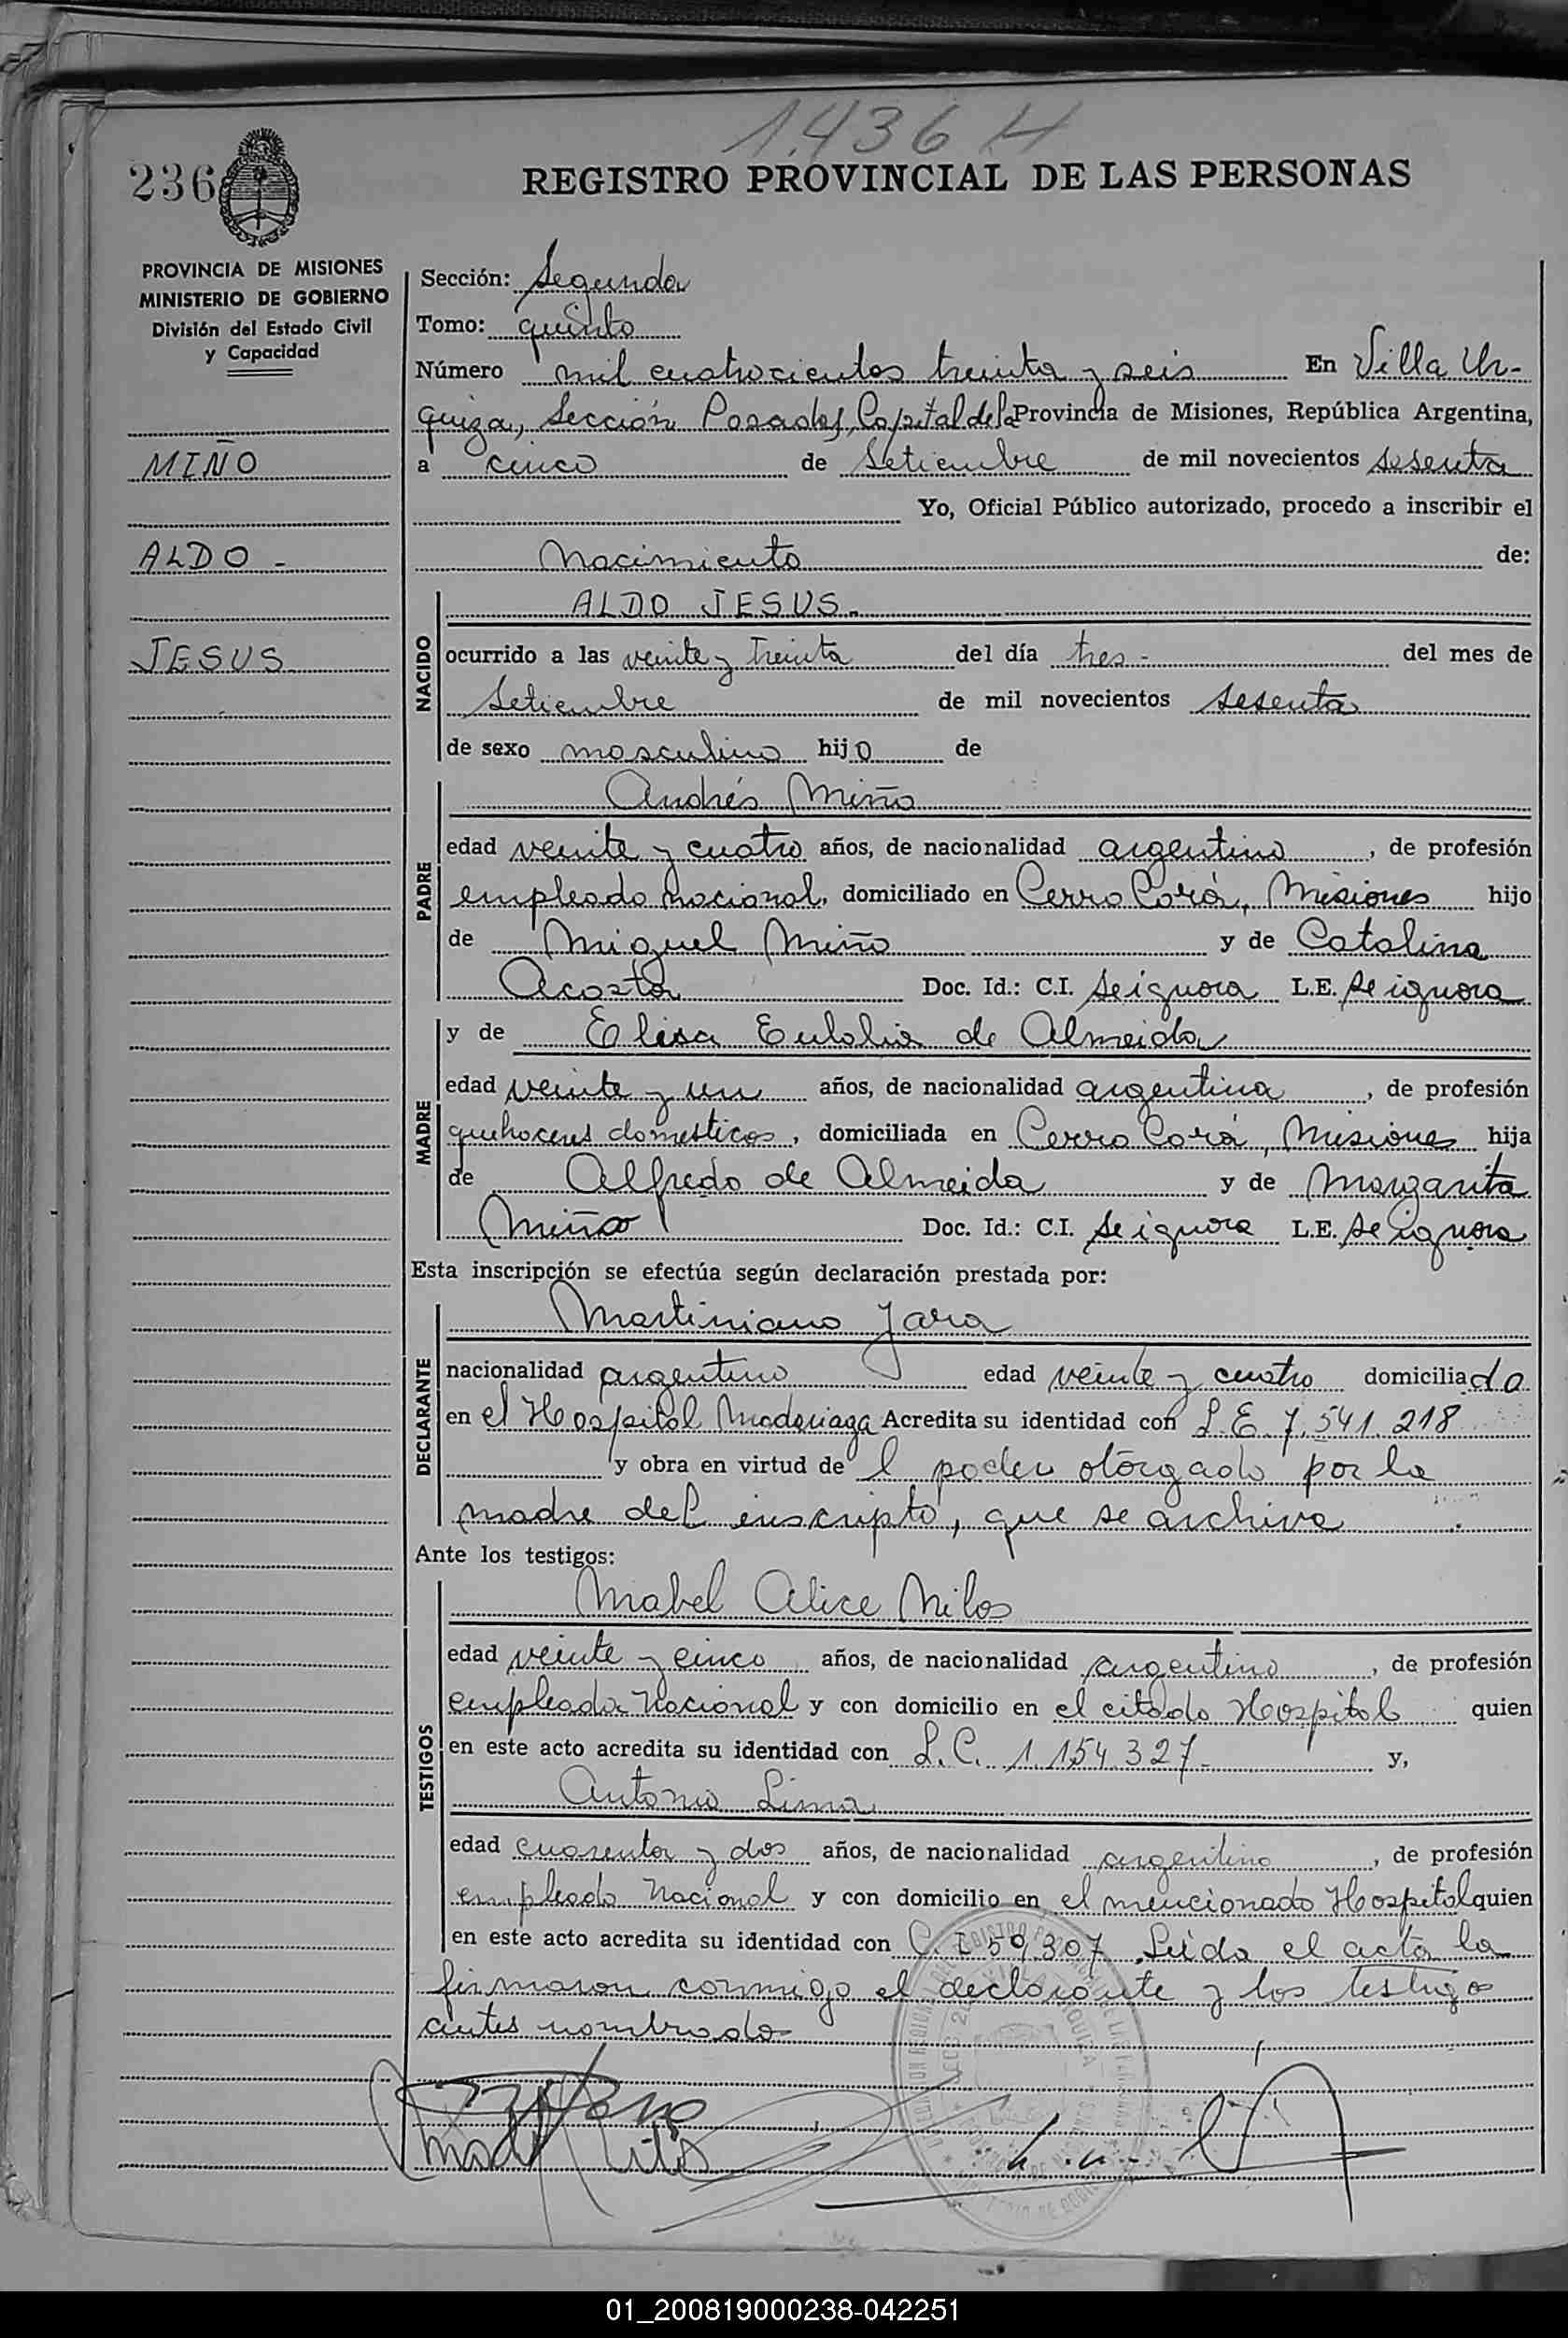 1.436 H
236
REGISTRO PROVINCIAL DE LAS PERSONAS
PROVINCIA DE MISIONES
MINISTERIO DE GOBIERNO
División del Estado Civil
y Capacidad
MIÑO
ALDO -
JESUS
Sección: Segunda
Tomo: quinto
Número mil cuatrocientos treinta y seis En Villa Ur-
quiza, Sección Posadas, Capital de la Provincia de Misiones, República Argentina,
a cinco de Setiembre de mil novecientos sesenta
Yo, Oficial Público autorizado, procedo a inscribir el
Nacimiento de:
NACIDO
ALDO JESUS.
ocurrido a las veinte y treinta del día tres - del mes de
Setiembre de mil novecientos sesenta
de sexo masculino hijo de
PADRE
Andrés Miño
edad veinte y cuatro años, de nacionalidad argentino, de profesión
empleado nacional, domiciliado en Cerro Corá, Misiones hijo
de Miguel Miño y de Catalina
Acosta Doc. Id.: C.I. Se ignora L.E. Se ignora
MADRE
y de Elisa Eulalia de Almeida
edad veinte y un años, de nacionalidad argentina, de profesión
quehaceres domesticos, domiciliada en Cerro Corá, Misiones hija
de Alfredo de Almeida y de Margarita
Miño Doc. Id.: C.I. Se ignora L.E. Se ignora
Esta inscripción se efectúa según declaración prestada por:
DECLARANTE
Martiniano Jara
nacionalidad argentino edad veinte y cuatro domiciliado
en el Hospital Madariaga Acredita su identidad con L.E. 7.541.218
y obra en virtud de l poder otorgado por la
madre del inscripto, que se archiva
Ante los testigos:
TESTIGOS
Mabel Alice Milos
edad veinte y cinco años, de nacionalidad argentina, de profesión
empleada Nacional y con domicilio en el citado Hospital quien
en este acto acredita su identidad con L.C. 1.154.327- y,
Antonio Lima
edad cuarenta y dos años, de nacionalidad argentino, de profesión
empleado Nacional y con domicilio en el mencionado Hospital quien
en este acto acredita su identidad con C.I 59.307. Leida el acta la
firmaron conmigo el declarante y los testigos
antes nombrado
01_200819000238-042251